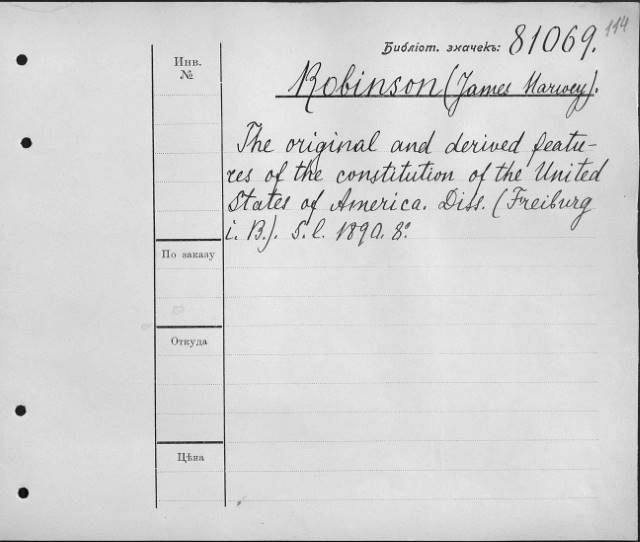 114
Библіот. значекъ: 81069.
Инв.
№
Robinson (James Harwey).
The original and derived featu-
res of the constitution of the United
States of America. Diss. (Freiburg
i. B.). S. l. 1890. 8°.
По заказу
Откуда
Цѣна